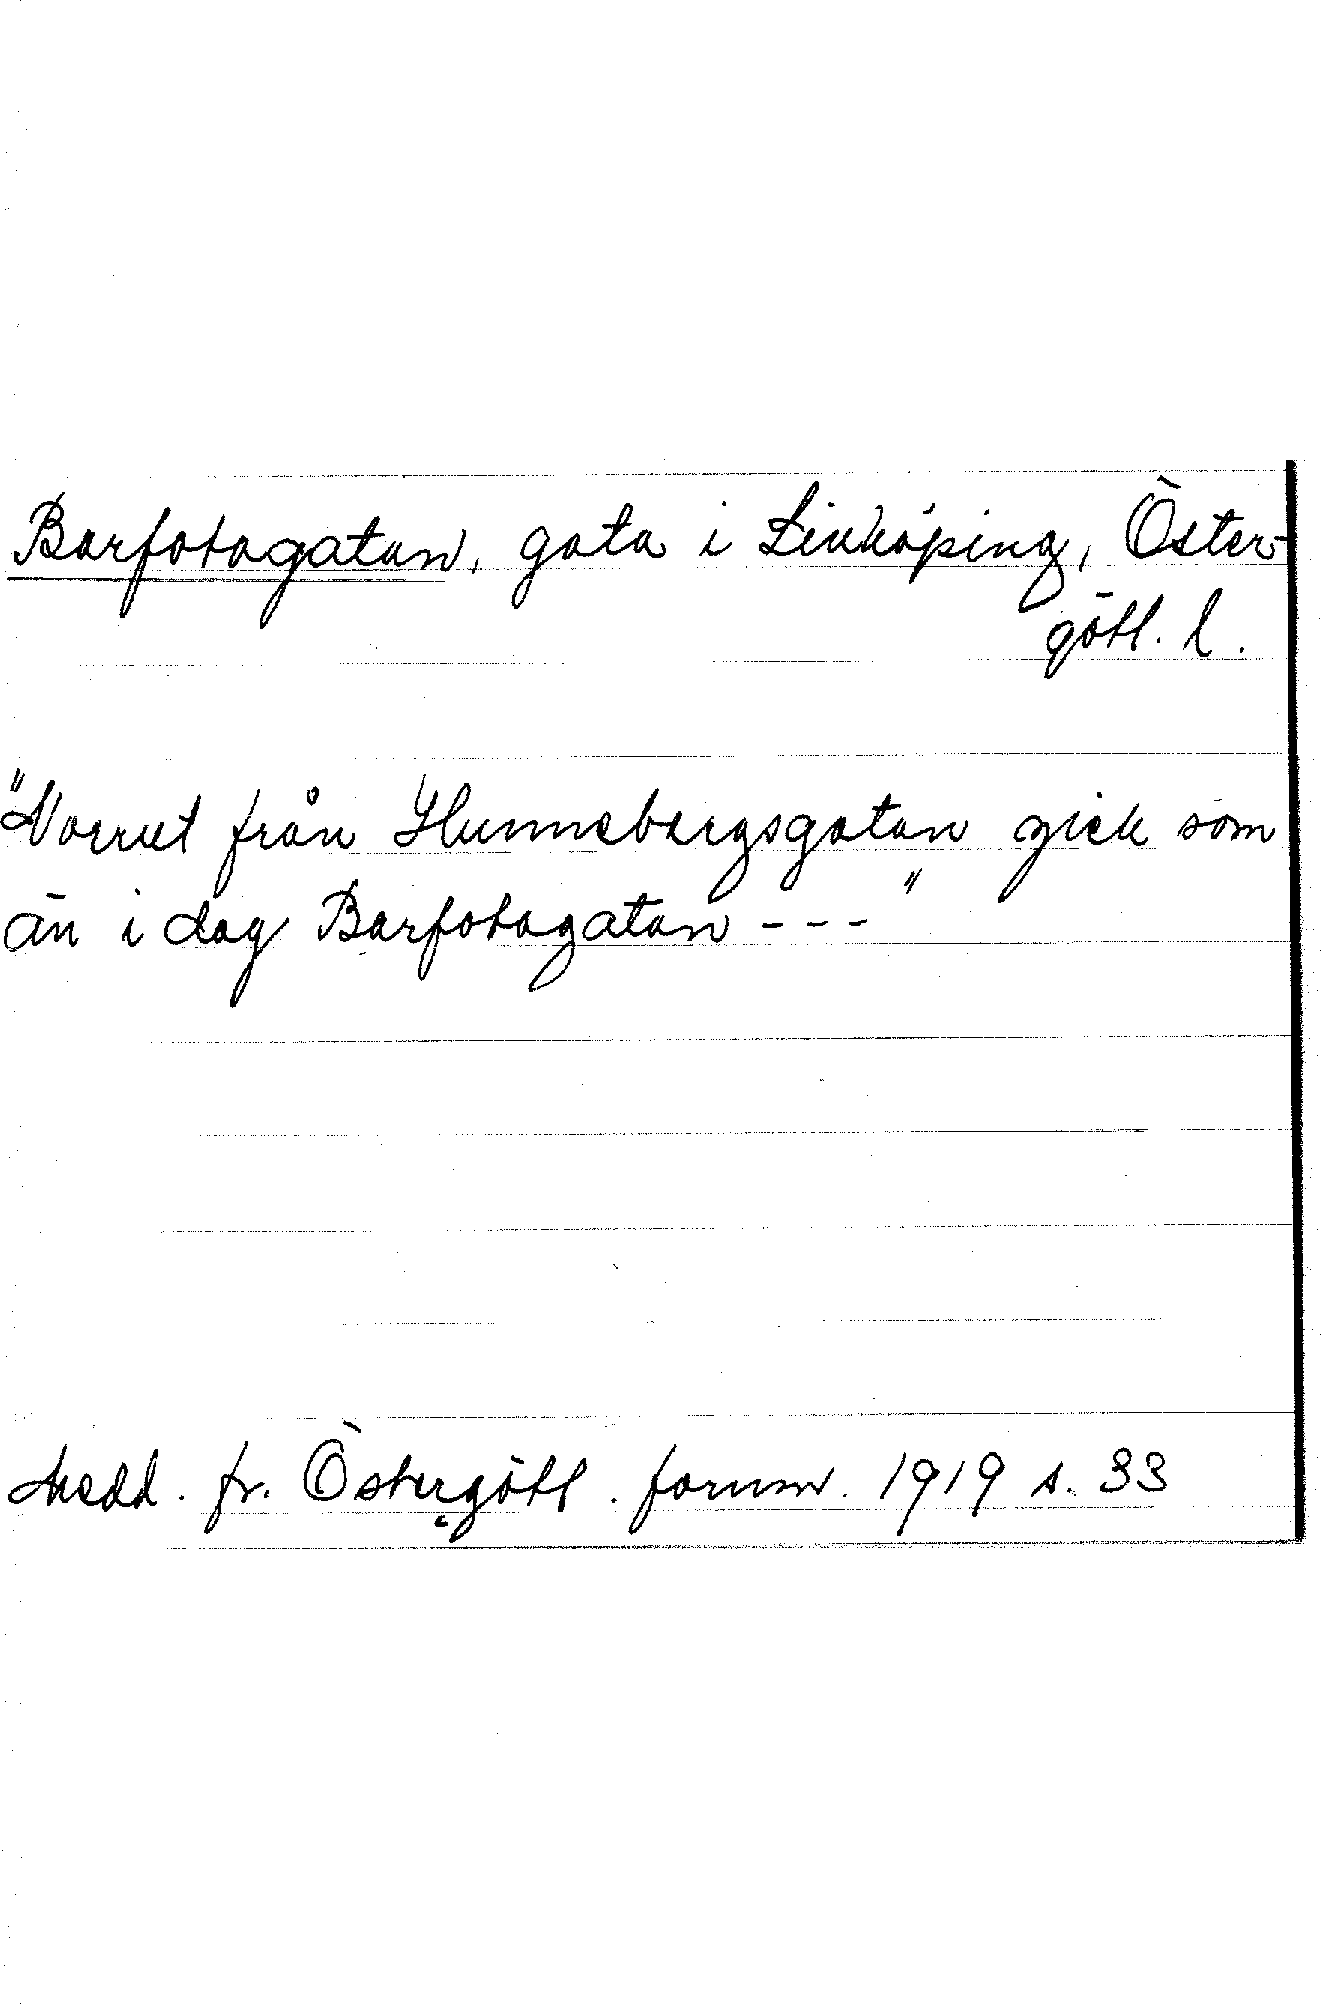 Barfotagatan, gata i Linköping, Öster-
götl. l.
"Norrut från Hunnebergsgatan gick som
än i dag Barfotagatan ---"
Medd. fr. Östergötl. fornm. 1919 s. 33